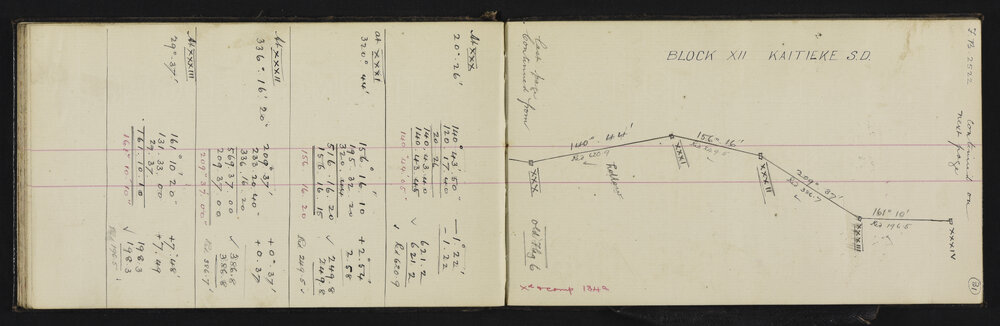 At XXX
20° 26'
140° 43' 50" — 1° 22'
120 . 17 . 40 — 1 . 22
20
140 . 43 . 40 621 . 2
140 . 43 . 45 ✓ 621 . 2
140 . 44 . 05 ✓ Rd 620.9
At XXXI
320° 44'
156° 16' 10 + 2° 54'
195 . 32 . 20 2 . 58
320 . 44
516 . 16 . 20 ✓ 249.8
156 16 . 15 249.8
156 16 20 Rd 249.5 ✓
At XXXII
336° 16' 20"
209° 37' + 0° 37'
233 20 40 + 0 . 37
336 . 16 20
569 37 00 ✓ 386.8
209 37 00 386.8
209° 37' 00" Rd 386.7 ✓
At XXXIII
29° 37'
161° 10' 20" + 7° 48'
131 . 33 . 00 + 7 . 49
29 . 37
161 . 10 . 10 198.3
161° 10' 10" ✓ 198.3
Rd 196.5
F B 2522
BLOCK XII KAITIEKE S.D.
Continued from
last page
Continued on
next page
140° 44'
Rd 620.9
156° 16'
Rd 249.5
209° 37'
Rd 386.7
161° 10'
Rd 196.5
XXX
XXXI
XXXII
XXXIII
XXXIV
Old Peg 6
Xd & comp
131